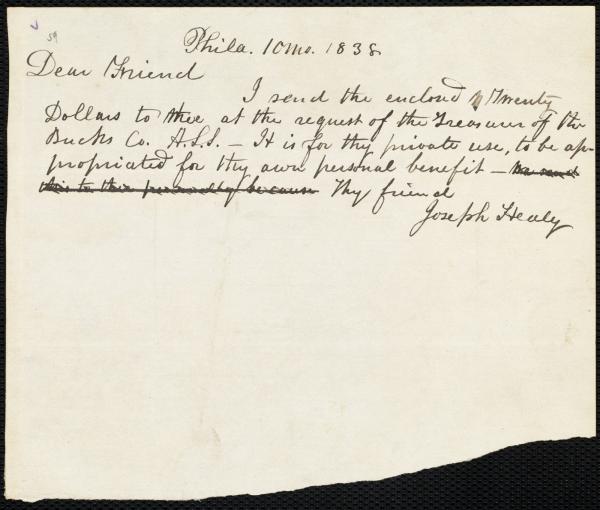 59
Phila. 10 mo. 1838
Dear Friend
I send the enclosed Twenty
Dollars to thee at the request of the Treasurer of the
Bucks Co. A.S.S. – It is for thy private use, to be ap-
propriated for thy own personal benefit – we send
this to thee personally because Thy friend
Joseph Healy